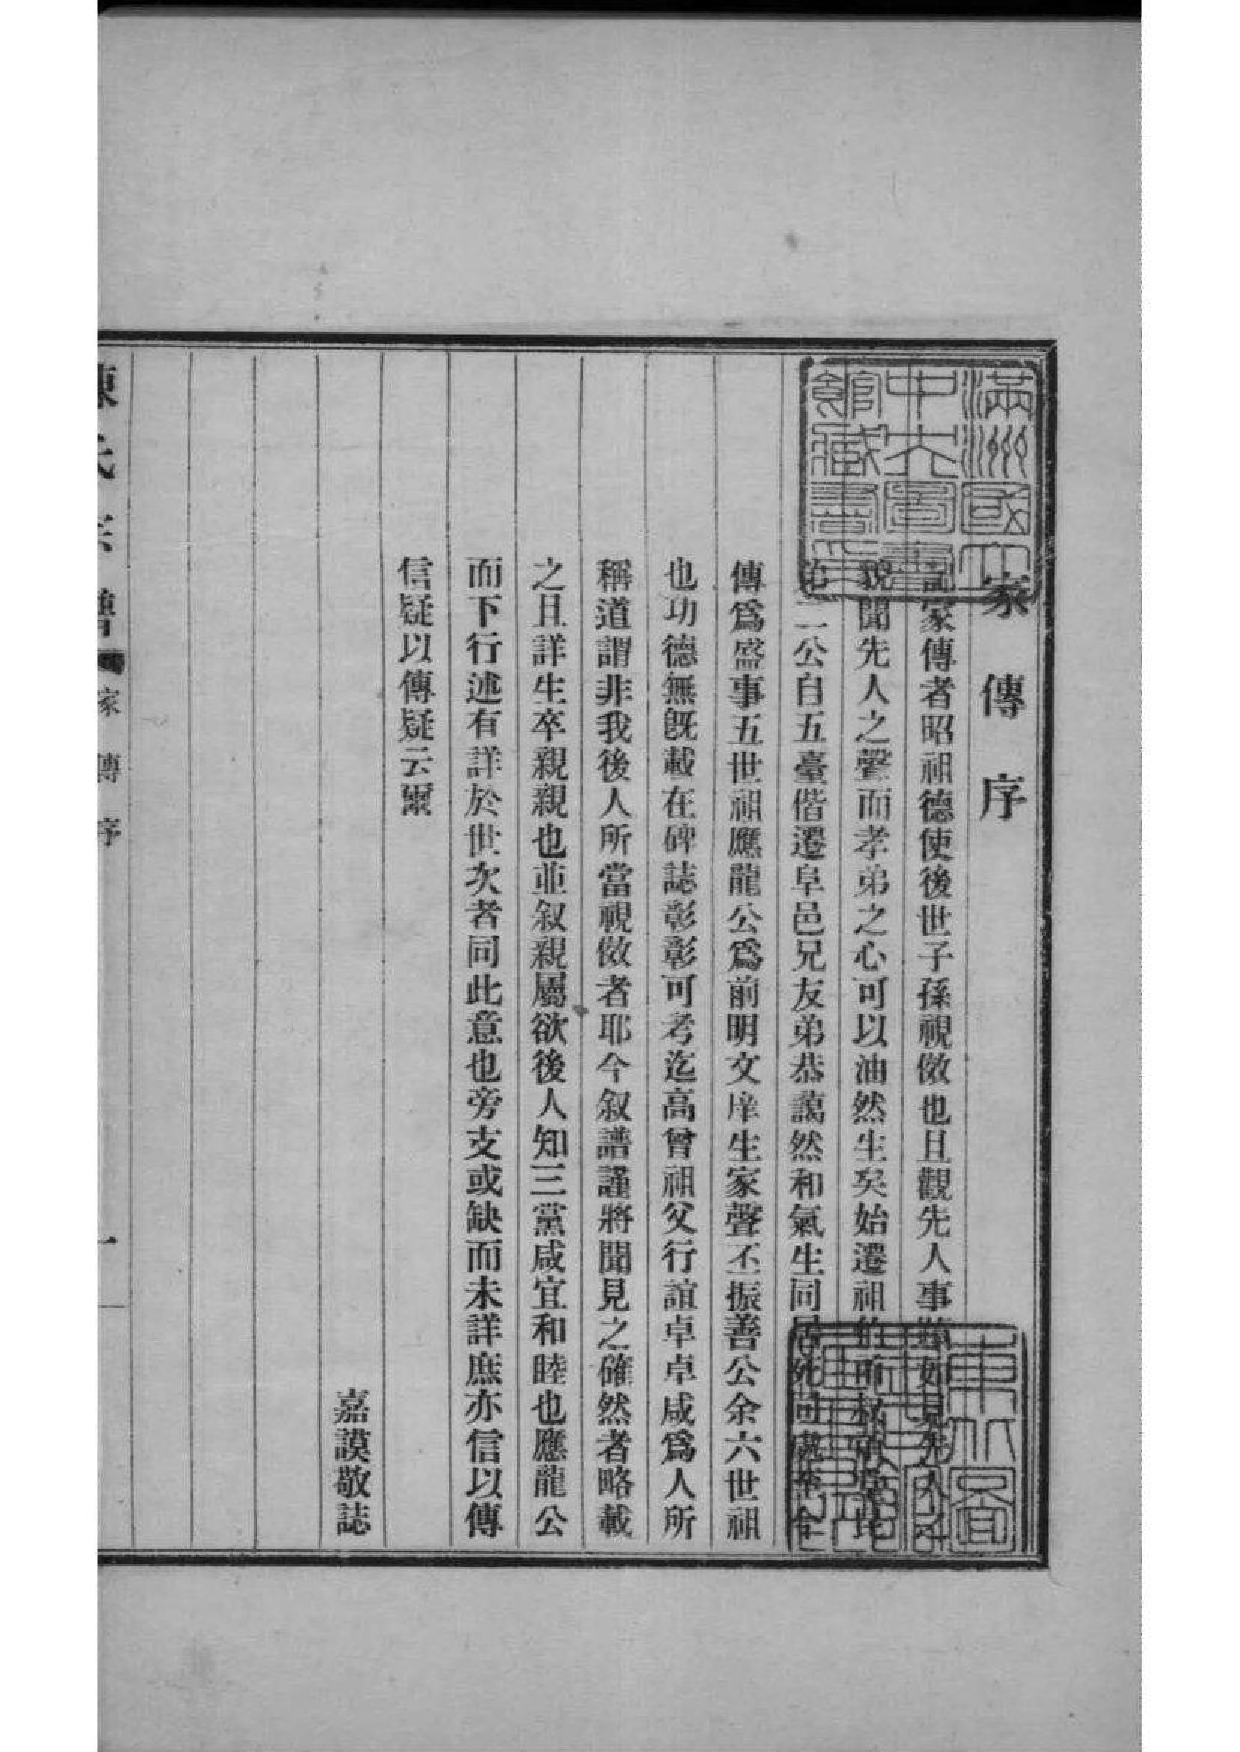 家傳序
記家傳者昭祖德使後世子孫視傚也且觀先人事蹟如見先人之
貌聞先人之聲而孝弟之心可以油然生矣始遷祖
二公白五臺偕遷阜邑兄友弟恭藹然和氣生同居死同處至今
傳爲盛事五世祖應龍公爲前明文庠生家聲丕振善公余六世祖
也功德無旣載在碑誌彰彰可考迄高曾祖父行誼卓卓咸爲人所
稱道謂非我後人所當視傚者耶今叙譜謹將聞見之確然者略載
之且詳生卒親親也並叙親屬欲後人知三黨咸宜和睦也應龍公
而下行述有詳於世次者同此意也旁支或缺而未詳庶亦信以傳
信疑以傳疑云爾
嘉謨敬誌
陳氏宗譜 家傳序 一
滿洲國立
中央圖書
館藏書印
東北圖